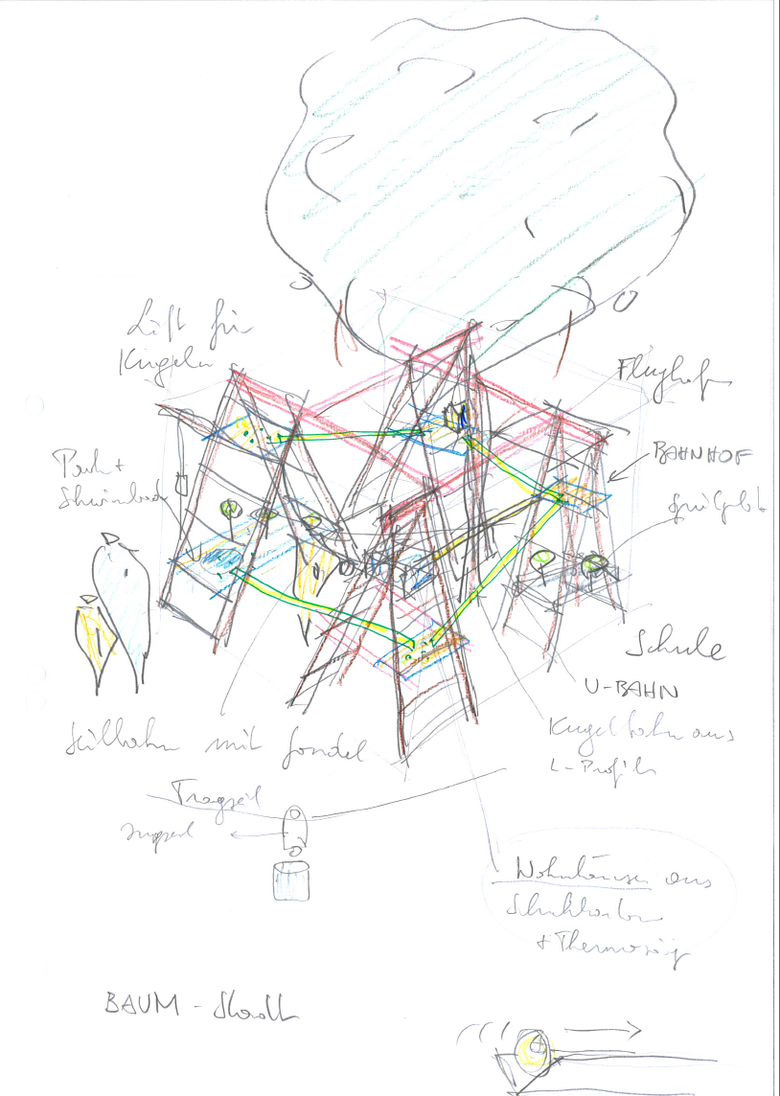 Lift für
Kugeln
Flughafen
BAHNHOF
Park +
Schwimmbad
Schule
U-BAHN
Seilbahn mit Gondel
Kugelbahn aus
L-Profil
Tragseil
Zugseil
Wohnhäuser aus
+ Thermo
BAUM - Stadt